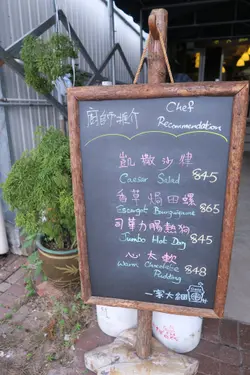 廚師推介
Chef
Recommendation
凱撒沙律
Caesar Salad $45
香草焗田螺
Escargot Bunguigane $65
司華力腸熱狗
Jumbo Hot Dog $45
心太軟
Warm Chocolate $48
Pudding
一家大細